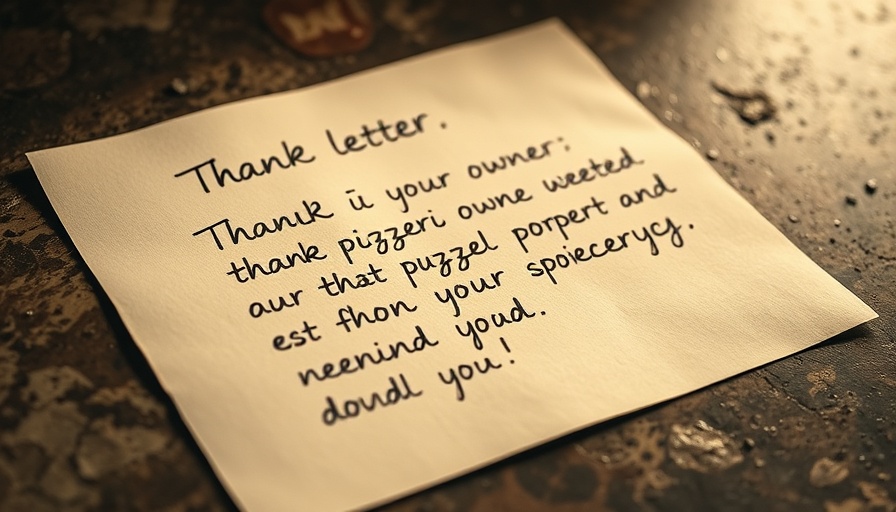 Thank letter.
Thanık ii your owner:
thank pizzeri owne weeted
aur that puzzel porpert and
est fhon your spoiecerycj.
neenind youd.
doudl you!